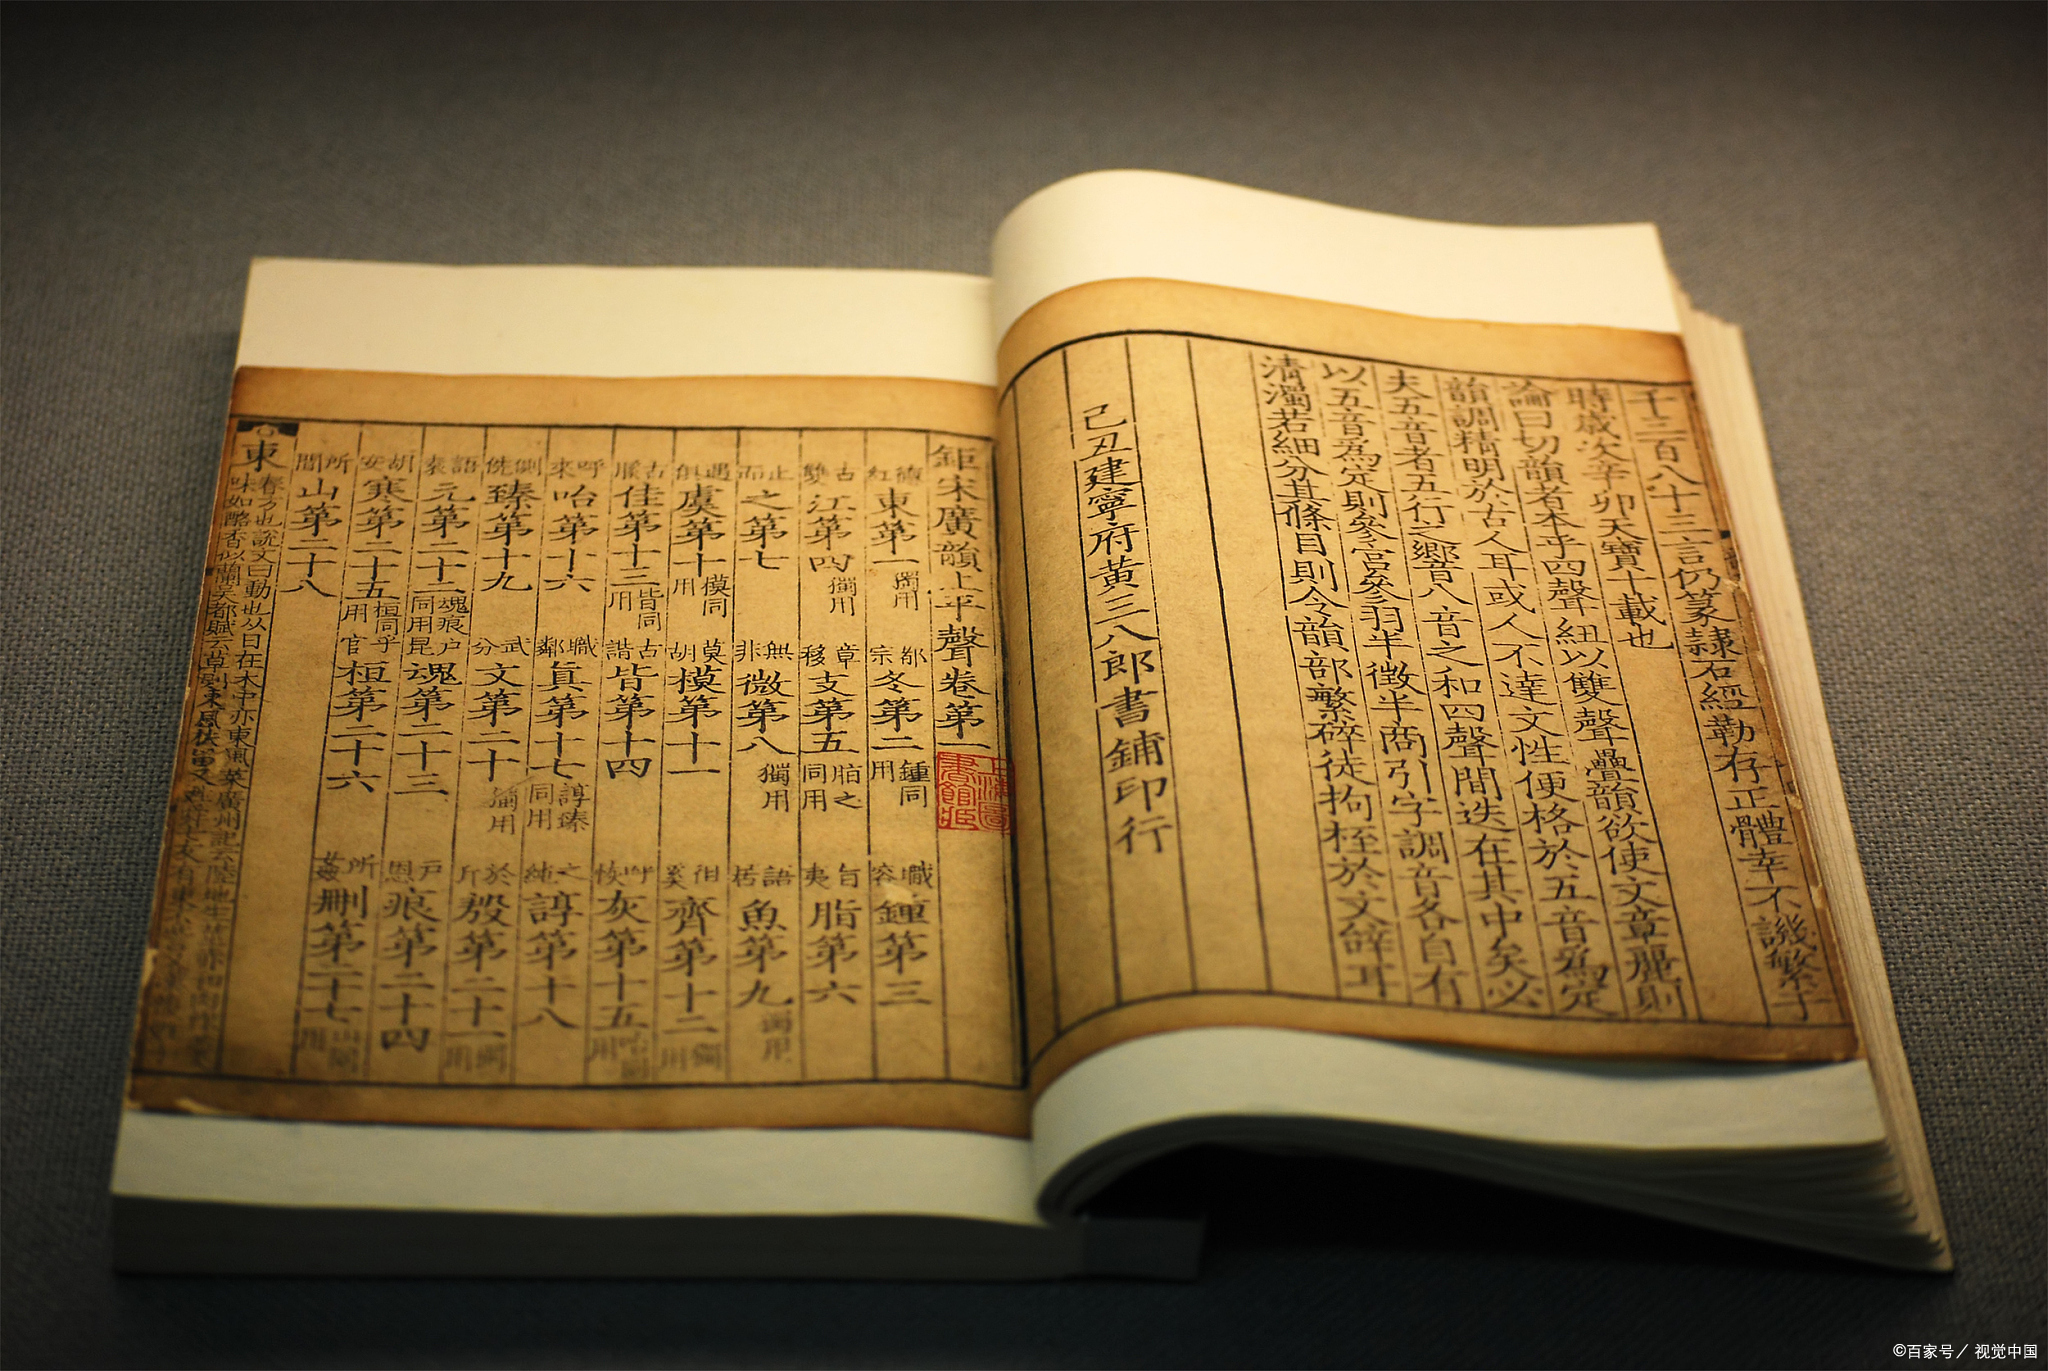 千三百八十三言仍篆隸石經勒存正體幸不譏繁于
時歲次辛卯天寶十載也
論曰切韻者本乎四聲紐以雙聲疊韻欲使文章麗則
韻調精明於古人耳或人不達文性便格於五音爲定
夫五音者五行之響八音之和四聲間迭在其中矣必
以五音爲定則參宮參羽半徵半商引字調音各自有
清濁若細分其條目則令韻部繁碎徒拘桎於文辭耳
己丑建寧府黃三八郎書鋪印行
鉅宋廣韻上平聲卷第一
德紅東第一獨用 都宗冬第二鍾同用 職容鍾第三
古雙江第四獨用 章移支第五脂之同用 旨夷脂第六
止而之第七 無非微第八獨用 語居魚第九獨用
遇俱虞第十模同用 莫胡模第十一 徂奚齊第十二獨用
古膎佳第十三皆同用 古諧皆第十四 呼恢灰第十五咍同用
呼來咍第十六 職鄰真第十七諄臻同用 之純諄第十八
側詵臻第十九 武分文第二十獨用 於斤殷第二十一獨用
語袁元第二十二魂痕同用 戶昆魂第二十三 戶恩痕第二十四
胡安寒第二十五桓同用 乎官桓第二十六 所姦刪第二十七山同用
所間山第二十八
東 春方也說文曰動也从日在木中亦東風菜廣州記云陸地生
味如酪香似蘭吳都賦云草則東風扶留又